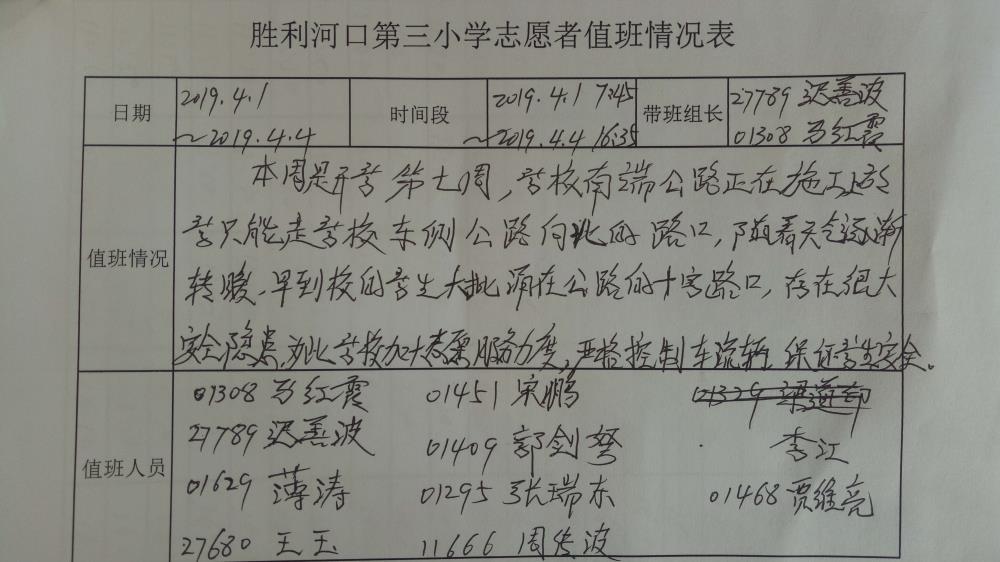 胜利河口第三小学志愿者值班情况表
日期 2019.4.1 ～2019.4.4 时间段 2019.4.1 7:45 ～2019.4.4 16:35 带班组长 27789 迟善波 01308 马红霞
值班情况
本周是开学第七周，学校南端公路正在施工，上放
学只能走学校东侧公路向北的路口，随着天气逐渐
转暖，早到校的学生大批滞在公路的十字路口，存在很大
安全隐患，为此学校加大志愿服务力度，严格控制车流辆，保证学生安全。
值班人员
01308 马红霞 01451 宋鹏 01329
27789 迟善波 01409 郭剑弩 李江
01629 薄涛 01295 张瑞东 01468 贾维亮
27680 王玉 11666 周传波